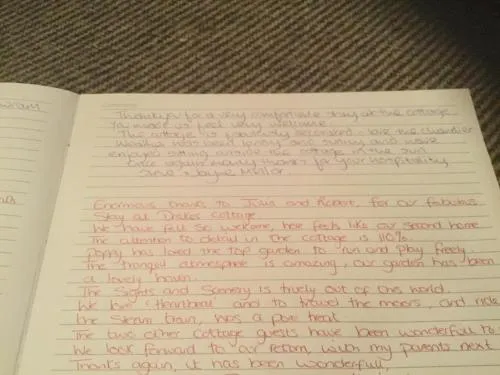 Thankyou for a very comfortable stay at the cottage
You made us feel very welcome
The cottage is beautifully decorated - love the chandelier
Weather has been lovely and sunny and have
enjoyed sitting outside the cottage in the sun
Once again many thanks for your hospitality
Steve & Jayne
Enormous thanks to Julia and Robert, for our fabulous
Stay at Drakes cottage.
We have felt so welcome, here feels like our second home
The attention to detail in the cottage is 110%
Poppy has loved the top garden to run and play freely.
The tranquil atmosphere is amazing, our garden has been
a lovely haven.
The Sights and Scenery is truely out of this world.
We love 'Heartbeat' and to travel the moors, and ride
the Steam train, was a pure treat
The two other cottage guests have been wonderfull to
We look forward to our return, with my parents next
Thanks again, it has been wonderfull,